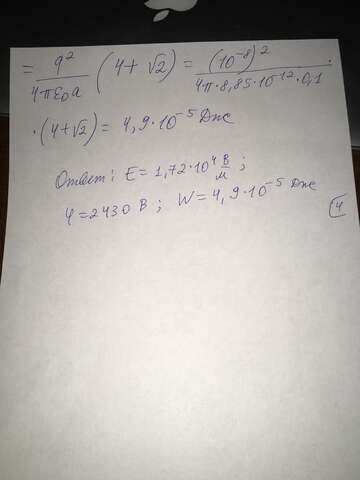 = q² / 4πε₀a (4 + √2) = (10⁻⁸)² / 4π·8,85·10⁻¹²·0,1 ·
·(4+√2) = 4,9·10⁻⁵ Дж
Ответ: E = 1,72·10⁴ В/м ;
φ = 2430 В ; W = 4,9·10⁻⁵ Дж
4